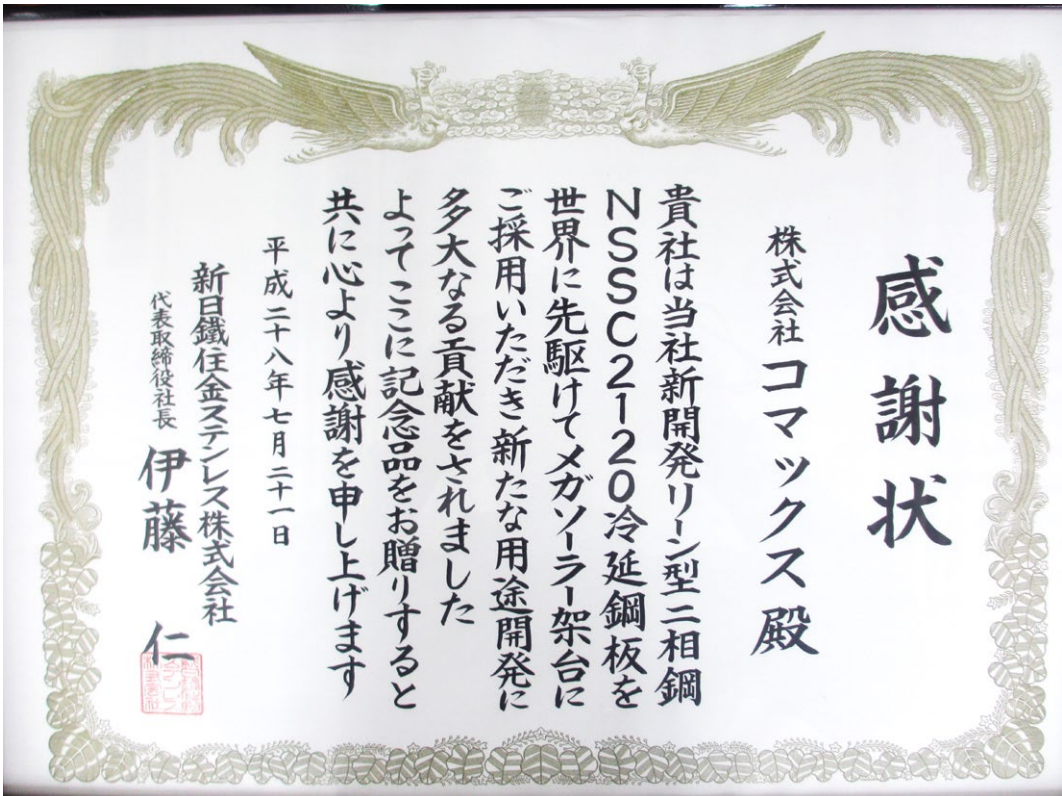 感謝状
株式会社 コマックス 殿
貴社は当社新開発リーン型二相鋼
NSSC2120冷延鋼板を
世界に先駆けてメガソーラー架台に
ご採用いただき新たな用途開発に
多大なる貢献をされました
よってここに記念品をお贈りすると
共に心より感謝を申し上げます
平成二十八年七月二十一日
新日鐵住金ステンレス株式会社
代表取締役社長 伊藤 仁